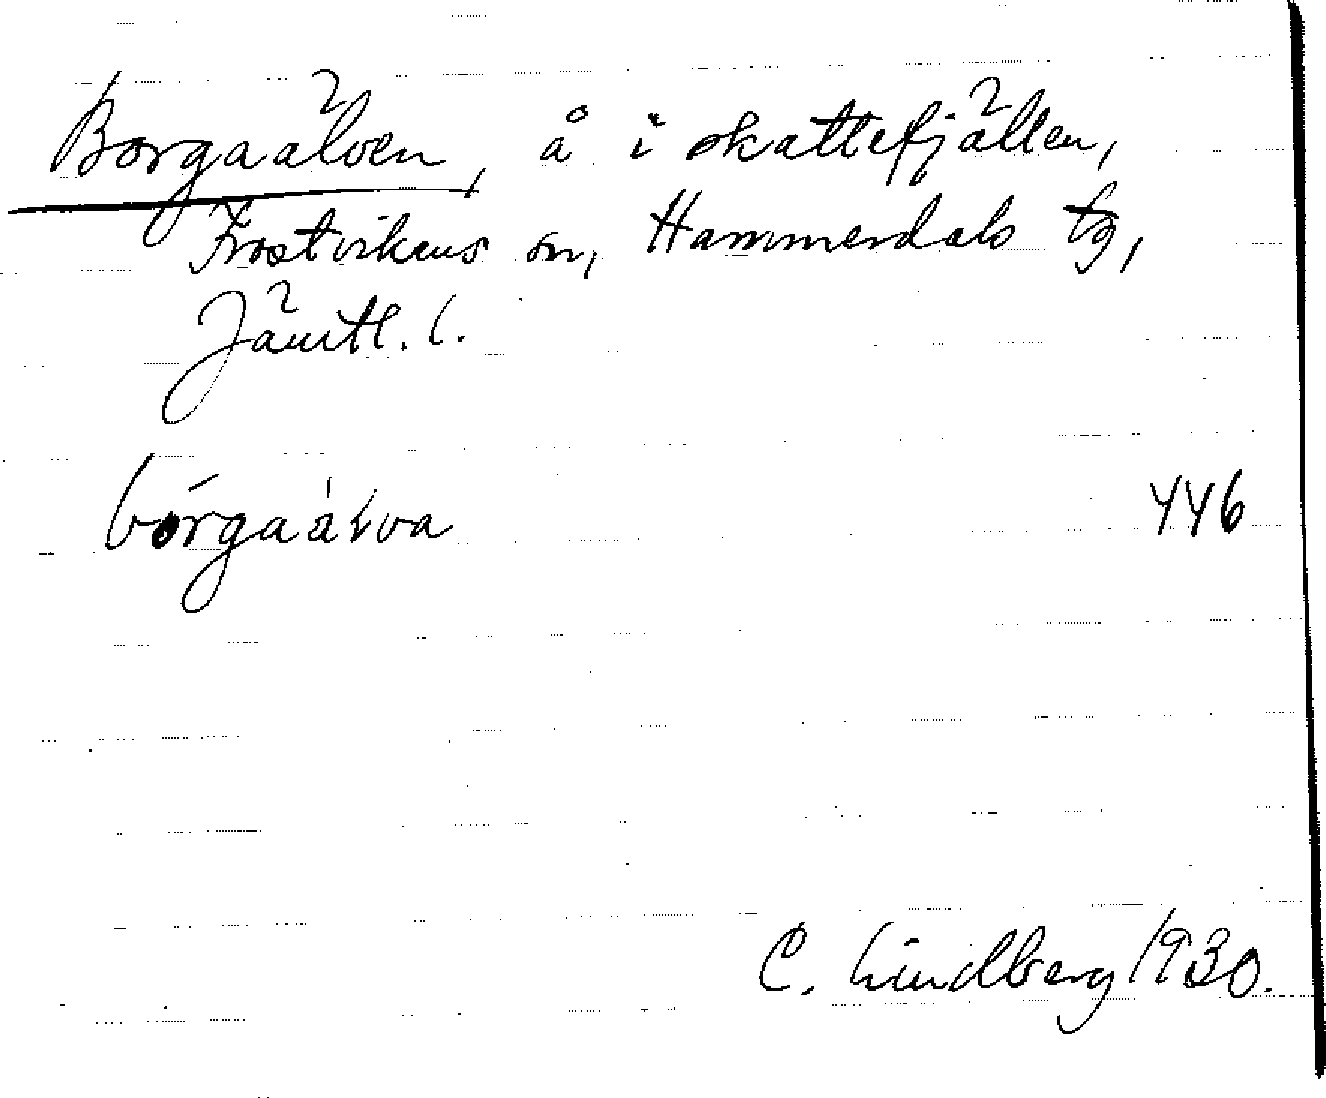 Borgaälven, å i skattefjällen,
Frostvikens sn, Hammerdals tg,
Jämtl. l.
446
C. Lindberg 1930.